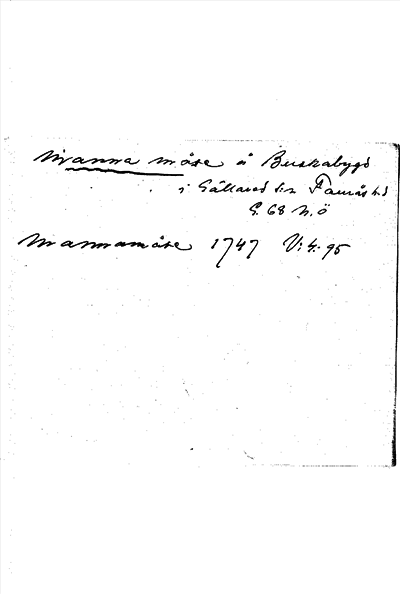 Manna måse å Buskabygd
i Gällared s:n Faurås hd
G. 68 N.Ö
Mannamåse 1747 V: 4: 95